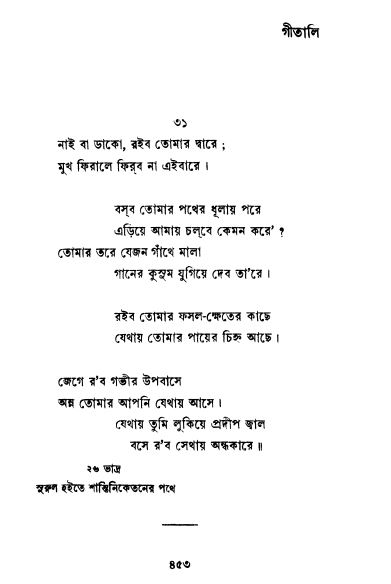 গীতালি
৩১
নাই বা ডাকো, রইব তোমার দ্বারে ;
মুখ ফিরালে ফির্‌ব না এইবারে ।
বস্‌ব তোমার পথের ধূলায় পরে
এড়িয়ে আমায় চল্‌বে কেমন করে’ ?
তোমার তরে যেজন গাঁথে মালা
গানের কুসুম যুগিয়ে দেব তা’রে ।
রইব তোমার ফসল-ক্ষেতের কাছে
যেথায় তোমার পায়ের চিহ্ন আছে ।
জেগে র’ব গভীর উপবাসে
অন্ন তোমার আপনি যেথায় আসে ।
যেথায় তুমি লুকিয়ে প্রদীপ জ্বাল
বসে র’ব সেথায় অন্ধকারে ॥
২৬ ভাদ্র
সুরুল হইতে শান্তিনিকেতনের পথে
৪৫৩